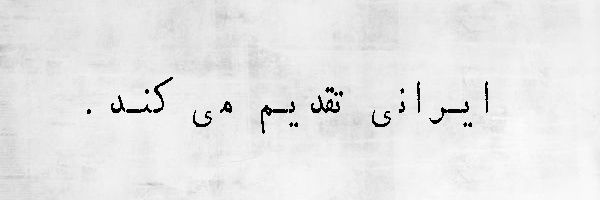 ایرانی تقدیم می کند .